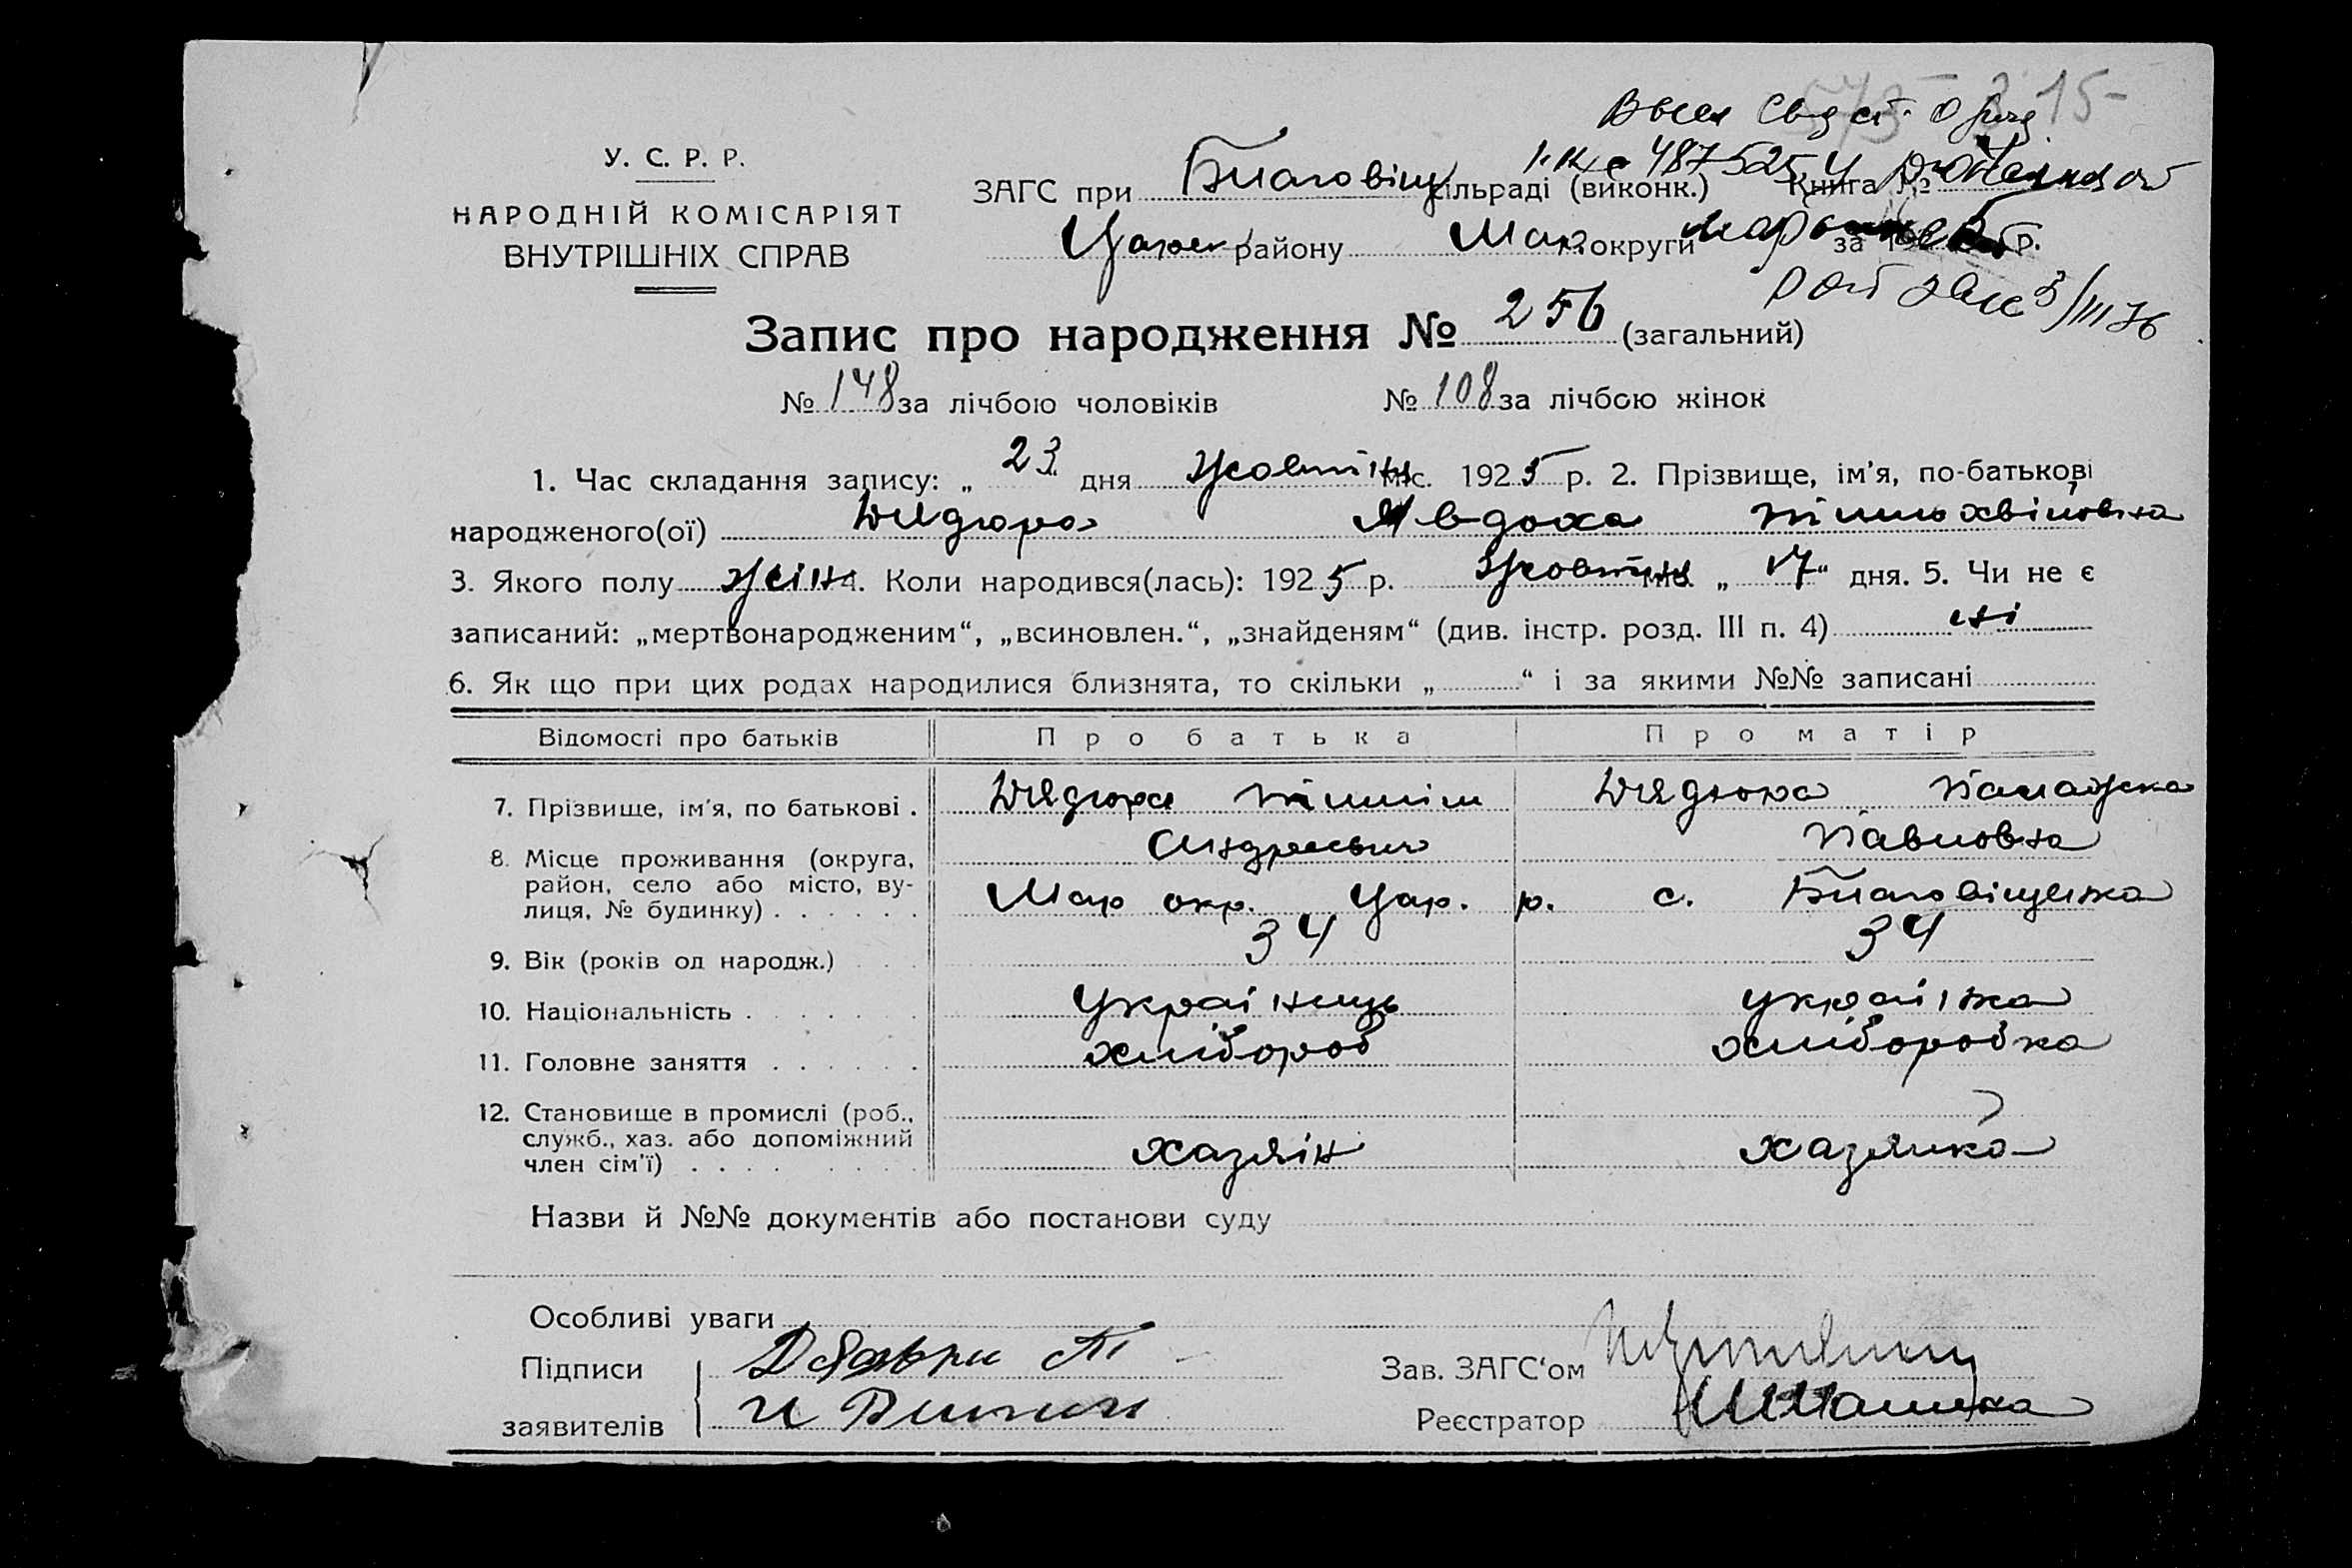 Высл Свідет. о рожд
У. С. Р. Р.
НАРОДНІЙ КОМІСАРІЯТ
ВНУТРІШНІХ СПРАВ
ЗАГС при Благовіщ сільраді (виконк.) Книга №
району Мар. округи за 192 р.
3/III 76
Запис про народження № 256 (загальний)
№ 148 за лічбою чоловіків № 108 за лічбою жінок
1. Час складання запису: „ 23 “ дня Жовтня міс. 1925 р. 2. Прізвище, ім’я, по-батькові
народженого(ої) Дядюра Явдоха Тімохвіївна
3. Якого полу жін 4. Коли народився(лась): 1925 р. Жовтня міс. „ 17 “ дня. 5. Чи не є
записаний: „мертвонародженим“, „всиновлен.“, „знайденям“ (див. інстр. розд. III п. 4) ні
6. Як що при цих родах народилися близнята, то скільки „ “ і за якими №№ записані
Відомості про батьків Про батька Про матір
7. Прізвище, ім’я, по батькові . Дядюра Тимпіш Дядюра Палажка
Андреевич Павловна
8. Місце проживання (округа,
район, село або місто, ву-
лиця, № будинку) . . . . . . Мар окр. Цар. р. с. Благовіщенка
9. Вік (років од народж.) . . . 34 34
10. Національність . . . . . . . Українець українка
11. Головне заняття . . . . . . хлібороб хліборобка
12. Становище в промислі (роб.,
служб., хаз. або допоміжний
член сім’ї) . . . . . . . . хазяін хазяйка
Назви й №№ документів або постанови суду
Особливі уваги
Підписи
Зав. ЗАГС‘ом
заявителів
Реєстратор